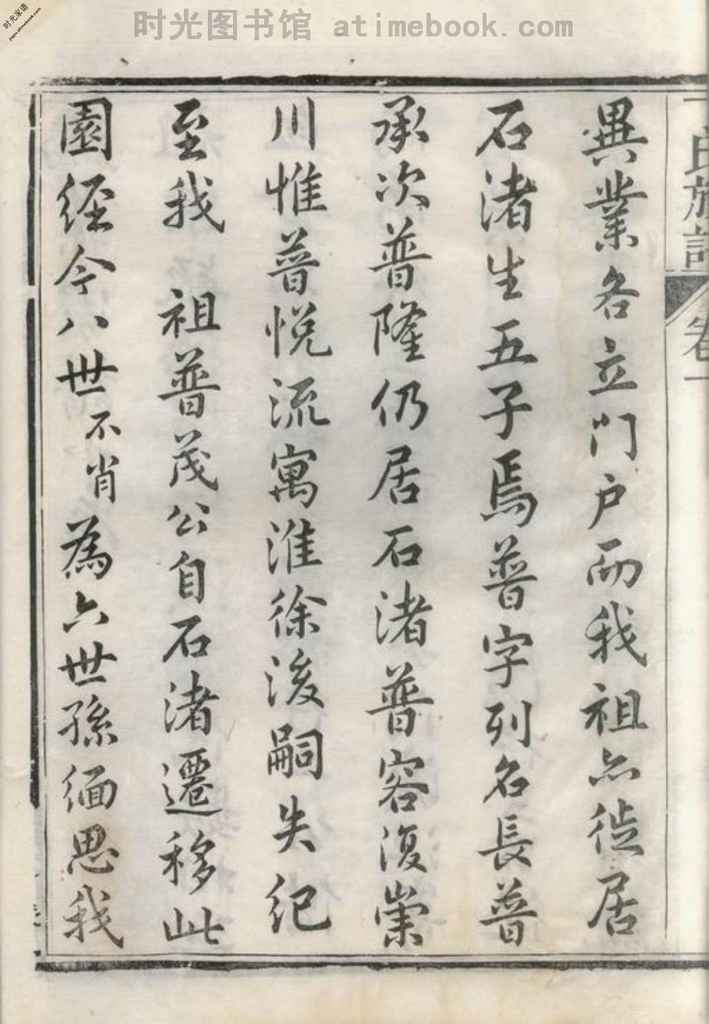 時光家谱
www.atimebook.com
时光图书馆 atimebook.com
氏族譜
卷一
異業各立門户而我祖亦徙居
石渚生五子焉普字列名長普
承次普隆仍居石渚普容復業
川惟普悦流寓淮徐後嗣失纪
至我 祖普茂公自石渚遷移此
園經今八世不肖為六世孫缅思我